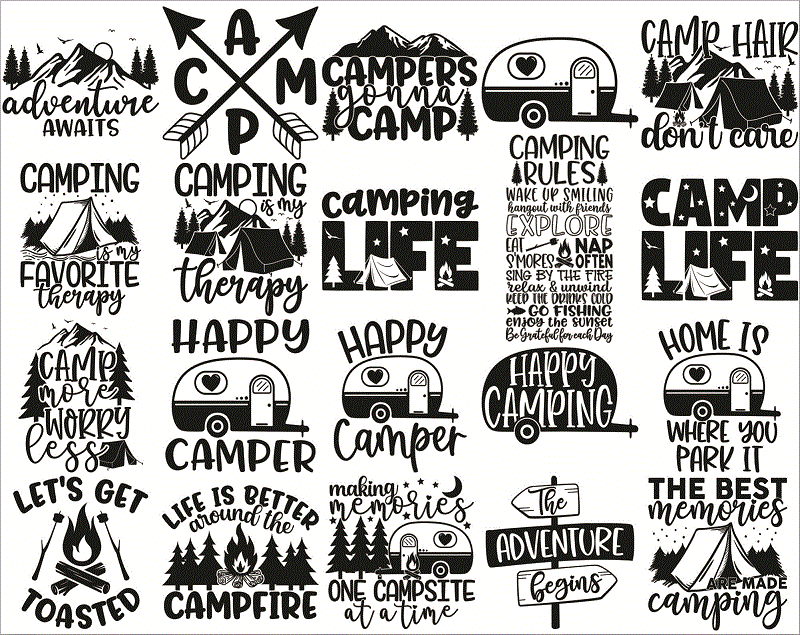 adventure
AWAITS
CAMP
CAMPERS
gonna
CAMP
CAMP HAIR
don't care
CAMPING
is my
FAVORITE
therapy
CAMPING
is my
therapy
camping
LIFE
CAMPING
RULES
WAKE UP SMILING
hangout with friends
EXPLORE
EAT NAP
S'MORES OFTEN
SING BY THE FIRE
relax & unwind
KEEP THE DRINKS COLD
GO FISHING
enjoy the sunset
Be Grateful for each Day
CAMP
LIFE
CAMP
more
WORRY
less
HAPPY
CAMPER
HAPPY
Camper
HAPPY
CAMPING
HOME IS
WHERE YOU
PARK IT
LET'S GET
TOASTED
LIFE IS BETTER
around the
CAMPFIRE
making
memories
ONE CAMPSITE
at a time
The
ADVENTURE
begins
THE BEST
memories
ARE MADE
camping